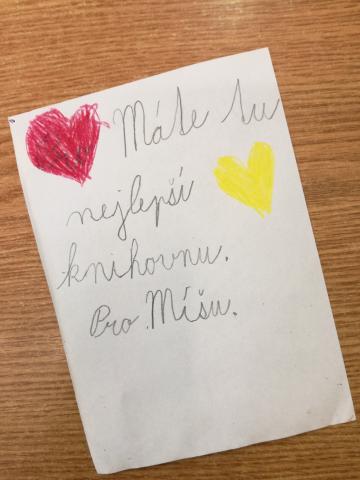 Máte tu
nejlepší
knihovnu.
Pro Míšu.